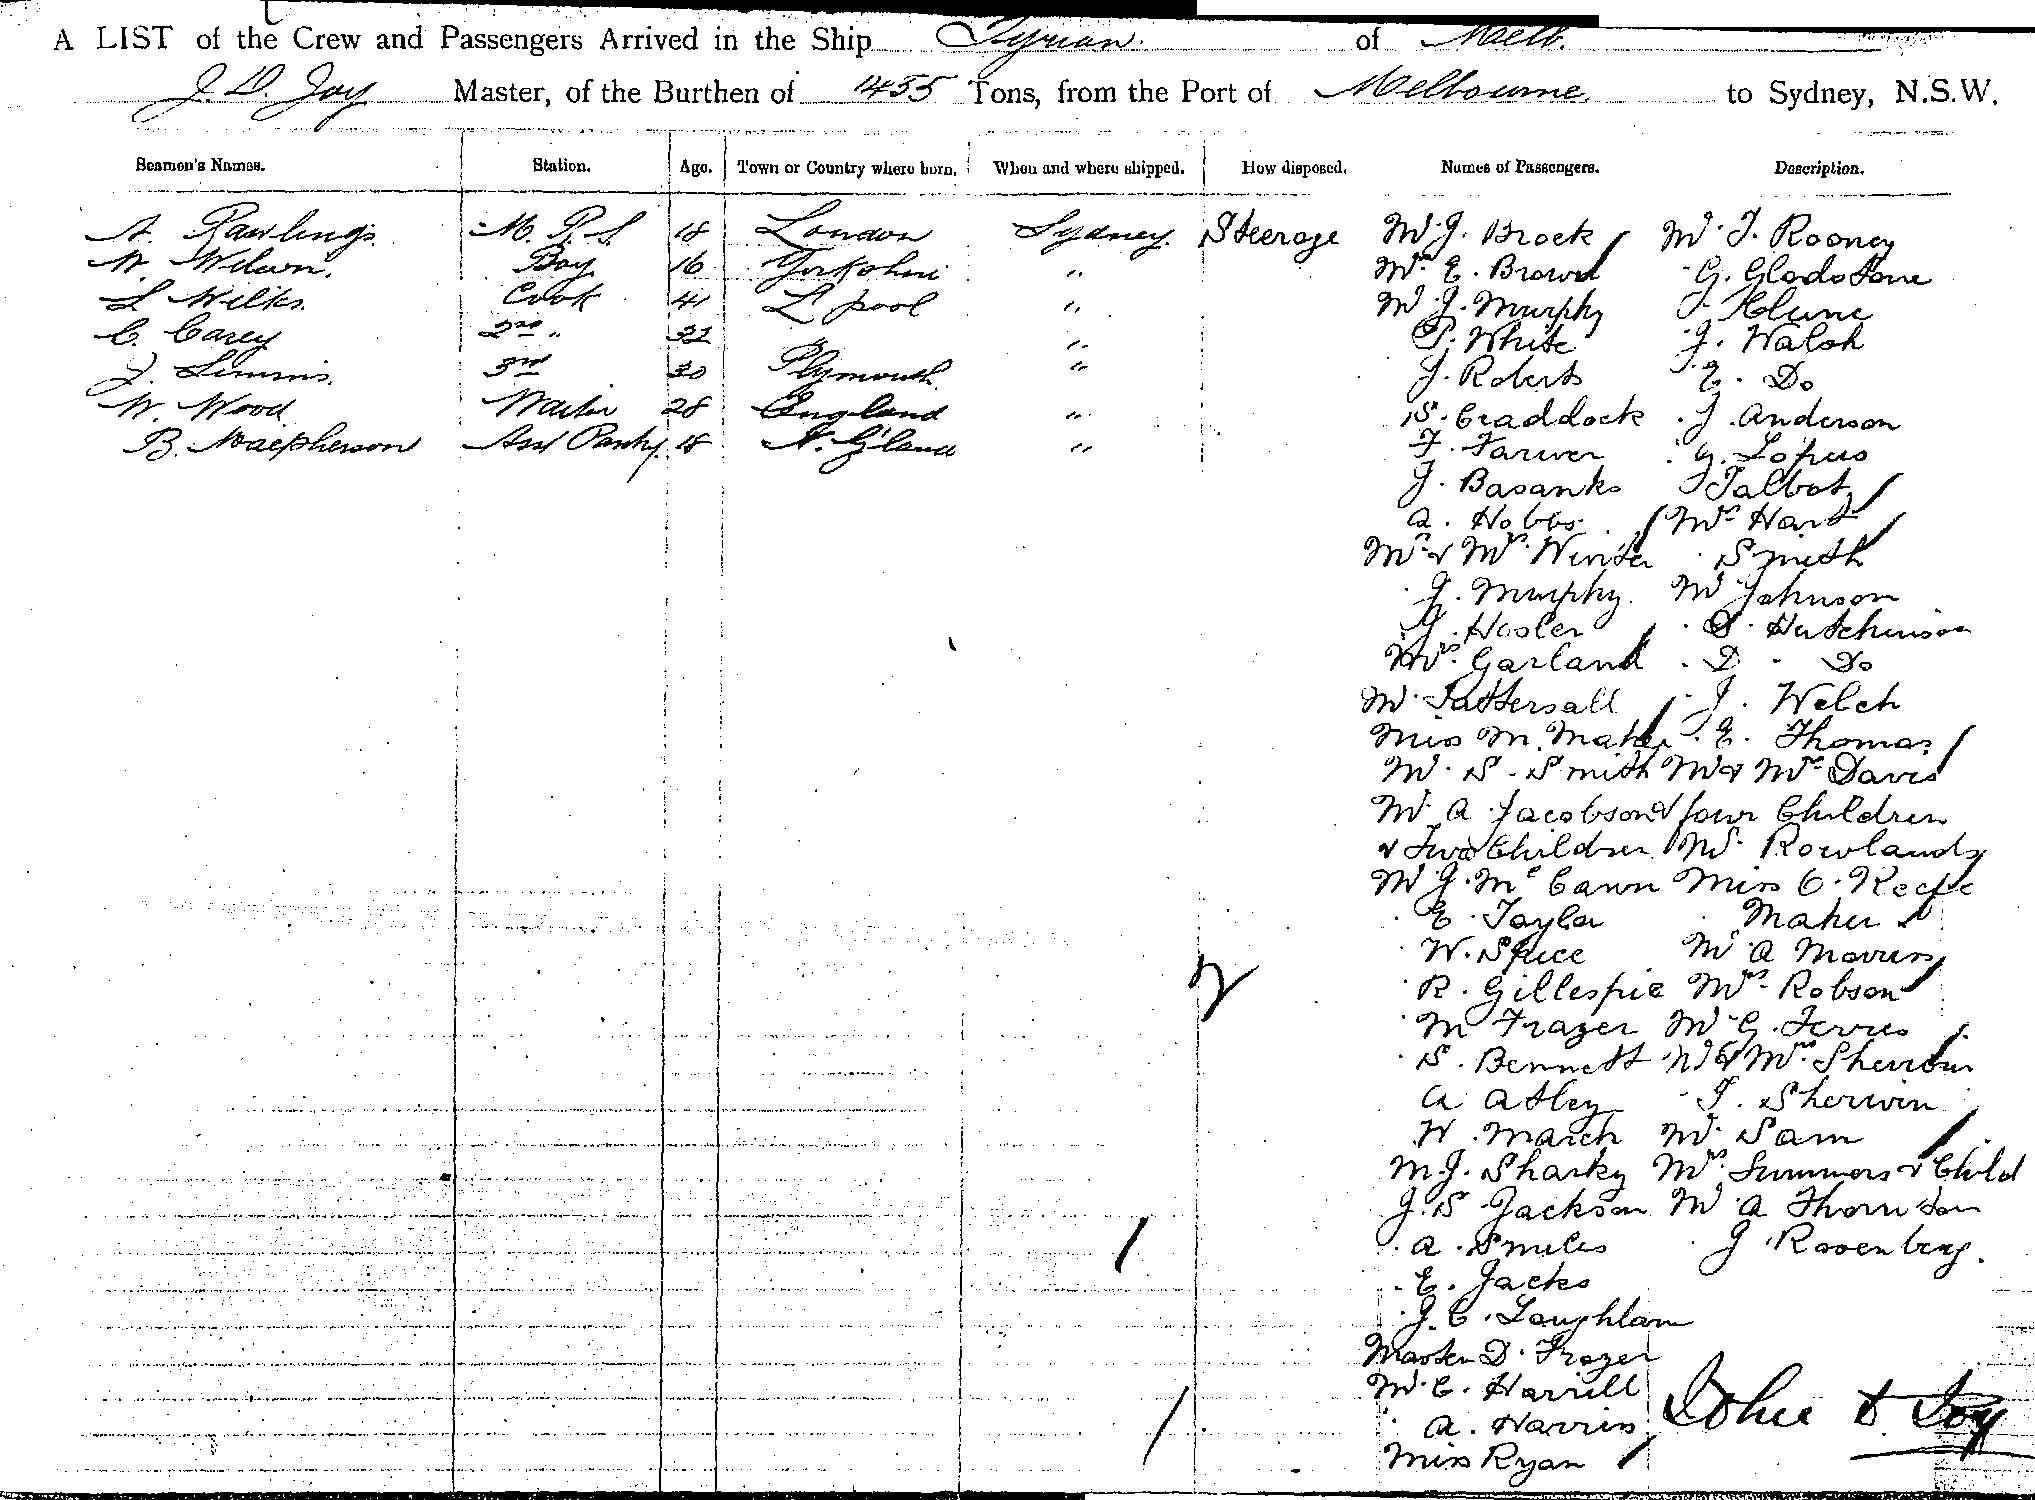 A LIST of the Crew and Passengers Arrived in the Ship Tyrian of Melb.
J. D. Joy Master, of the Burthen of 1455 Tons, from the Port of Melbourne to Sydney, N.S.W.
Seamen's Names. Station. Age. Town or Country where born. When and where shipped. How disposed. Names of Passengers. Description.
A. Rawlings M. R. S. 18 London Sydney Steerage Mr J. Brock Mr T. Rooney
W. Wilson. Boy 16 Yorkshire " Mrs E. Brown G. Gladstone
S Wilks. Cook 41 L'pool " Mr J. Murphy Clune
C. Carey 2nd " 32 " P. White J. Walsh
J. Simms. 3rd 30 Plymouth " J. Roberts E. Do
W. Wood Waiter 28 England " S. Craddock J. Anderson
B. Macpherson Asst Pantry 18 N. Z'land " F. Farwer G. Lopus
J. Basanks Talbot
A. Hobbs. Mrs Hart
Mr & Mrs Winter Smith
J. Murphy. Mr Johnson
J. Hosler S. Hutchinson
Mrs Garland D Do
Mr Tattersall J. Welch
Miss M. Maher E. Thomas
Mr S. Smith Mr & Mrs Davis
Mr A Jacobson & four Children
& Two Children Mr Rowlands
Mr J. McCann Miss O. Keefe
E. Taylor Maher
W. Spice Mr A Morris
R. Gillespie Mrs Robson
M Frazer Mr G. Ferries
S. Bennett Mr & Mrs Sherwin
A Atley T. Sherwin
W. March Mr Sam
M. J. Sharky Mrs Summers & Child
J. S. Jackson Mr A Thornton
A. Smiles J. Rosenberg.
E. Jacks
J. C. Loughlam
Master D. Frazer
Mr C. Harrill
A. Harris John D. Joy
Miss Ryan